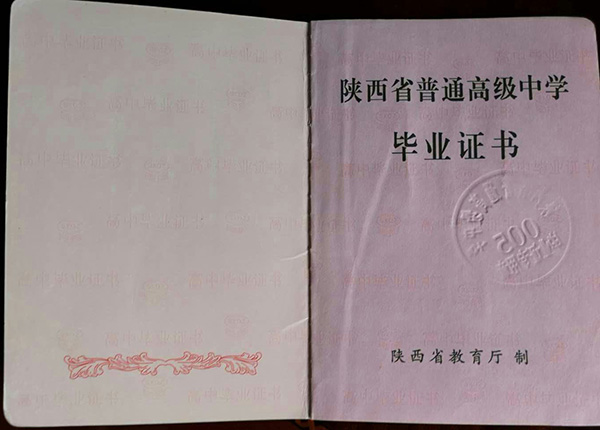 陕西省普通高级中学
毕业证书
陕西省教育厅 制